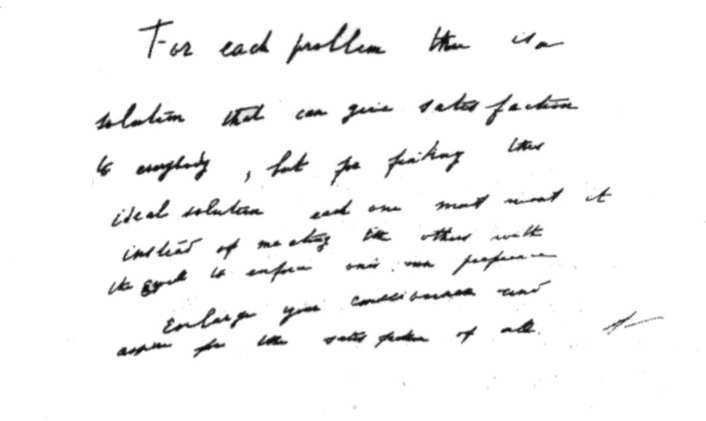 For each problem there is a
solution that can give satisfaction
to everybody, but for finding this
ideal solution each one must want it
instead of meeting the others with
the will to enforce one's own preference
Enlarge your consciousness and
aspire for the satisfaction of all.